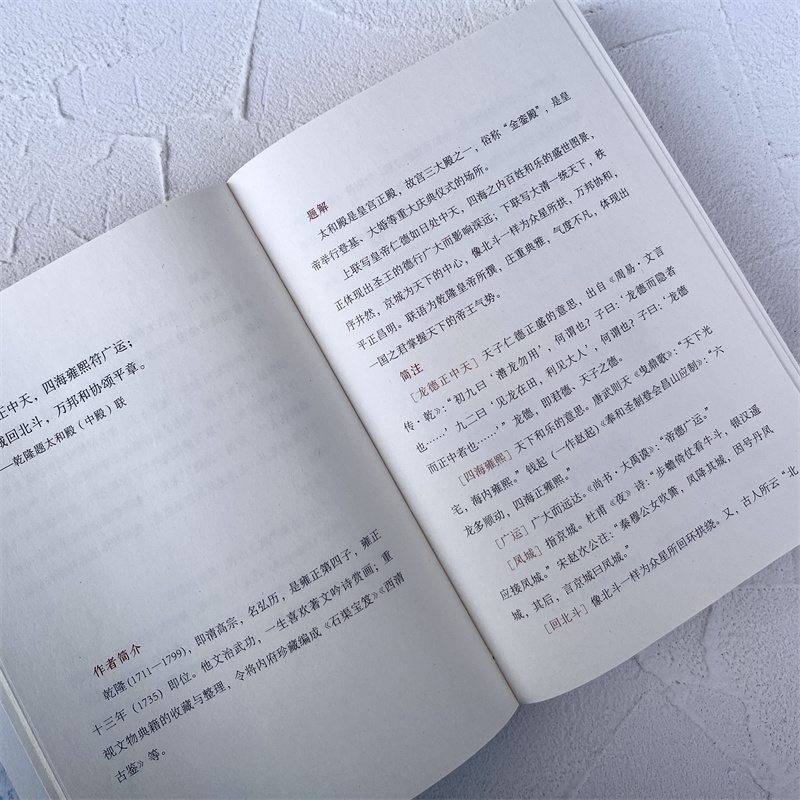 正中天，四海雍熙符广运；
城回北斗，万邦和协颂平章。
——乾隆题太和殿（中殿）联
作者简介
乾隆（1711—1799），即清高宗，名弘历，是雍正第四子，雍正
十三年（1735）即位。他文治武功，一生喜欢著文吟诗赏画；重
视文物典籍的收藏与整理，令将内府珍藏编成《石渠宝笈》《西清
古鉴》等。
题解
太和殿是皇宫正殿，故宫三大殿之一，俗称“金銮殿”，是皇
帝举行登基、大婚等重大庆典仪式的场所。
上联写皇帝仁德如日处中天，四海之内百姓和乐的盛世图景，
正体现出圣王的德行广大而影响深远；下联写大清一统天下，秩
序井然，京城为天下的中心，像北斗一样为众星所拱，万邦协和，
平正昌明。联语为乾隆皇帝所撰，庄重典雅，气度不凡，体现出
一国之君掌握天下的帝王气势。
简注
［龙德正中天］天子仁德正盛的意思，出自《周易·文言
传·乾》：“初九曰‘潜龙勿用’，何谓也？子曰：‘龙德而隐者
也……’九二曰‘见龙在田，利见大人’，何谓也？子曰：‘龙德
而正中者也……’”龙德，即君德、天子之德。
［四海雍熙］天下和乐的意思。唐武则天《曳鼎歌》：“天下光
宅，海内雍熙。”钱起（一作赵起）《奉和圣制登会昌山应制》：“六
龙多顺动，四海正雍熙。”
［广运］广大而远达。《尚书·大禹谟》：“帝德广运。”
［凤城］指京城。杜甫《夜》诗：“步蟾倚仗看牛斗，银汉遥
应接凤城。”宋赵次公注：“秦穆公女吹箫，凤降其城，因号丹凤
城，其后，言京城曰凤城。”
［回北斗］像北斗一样为众星所回环拱绕。又，古人所云“北